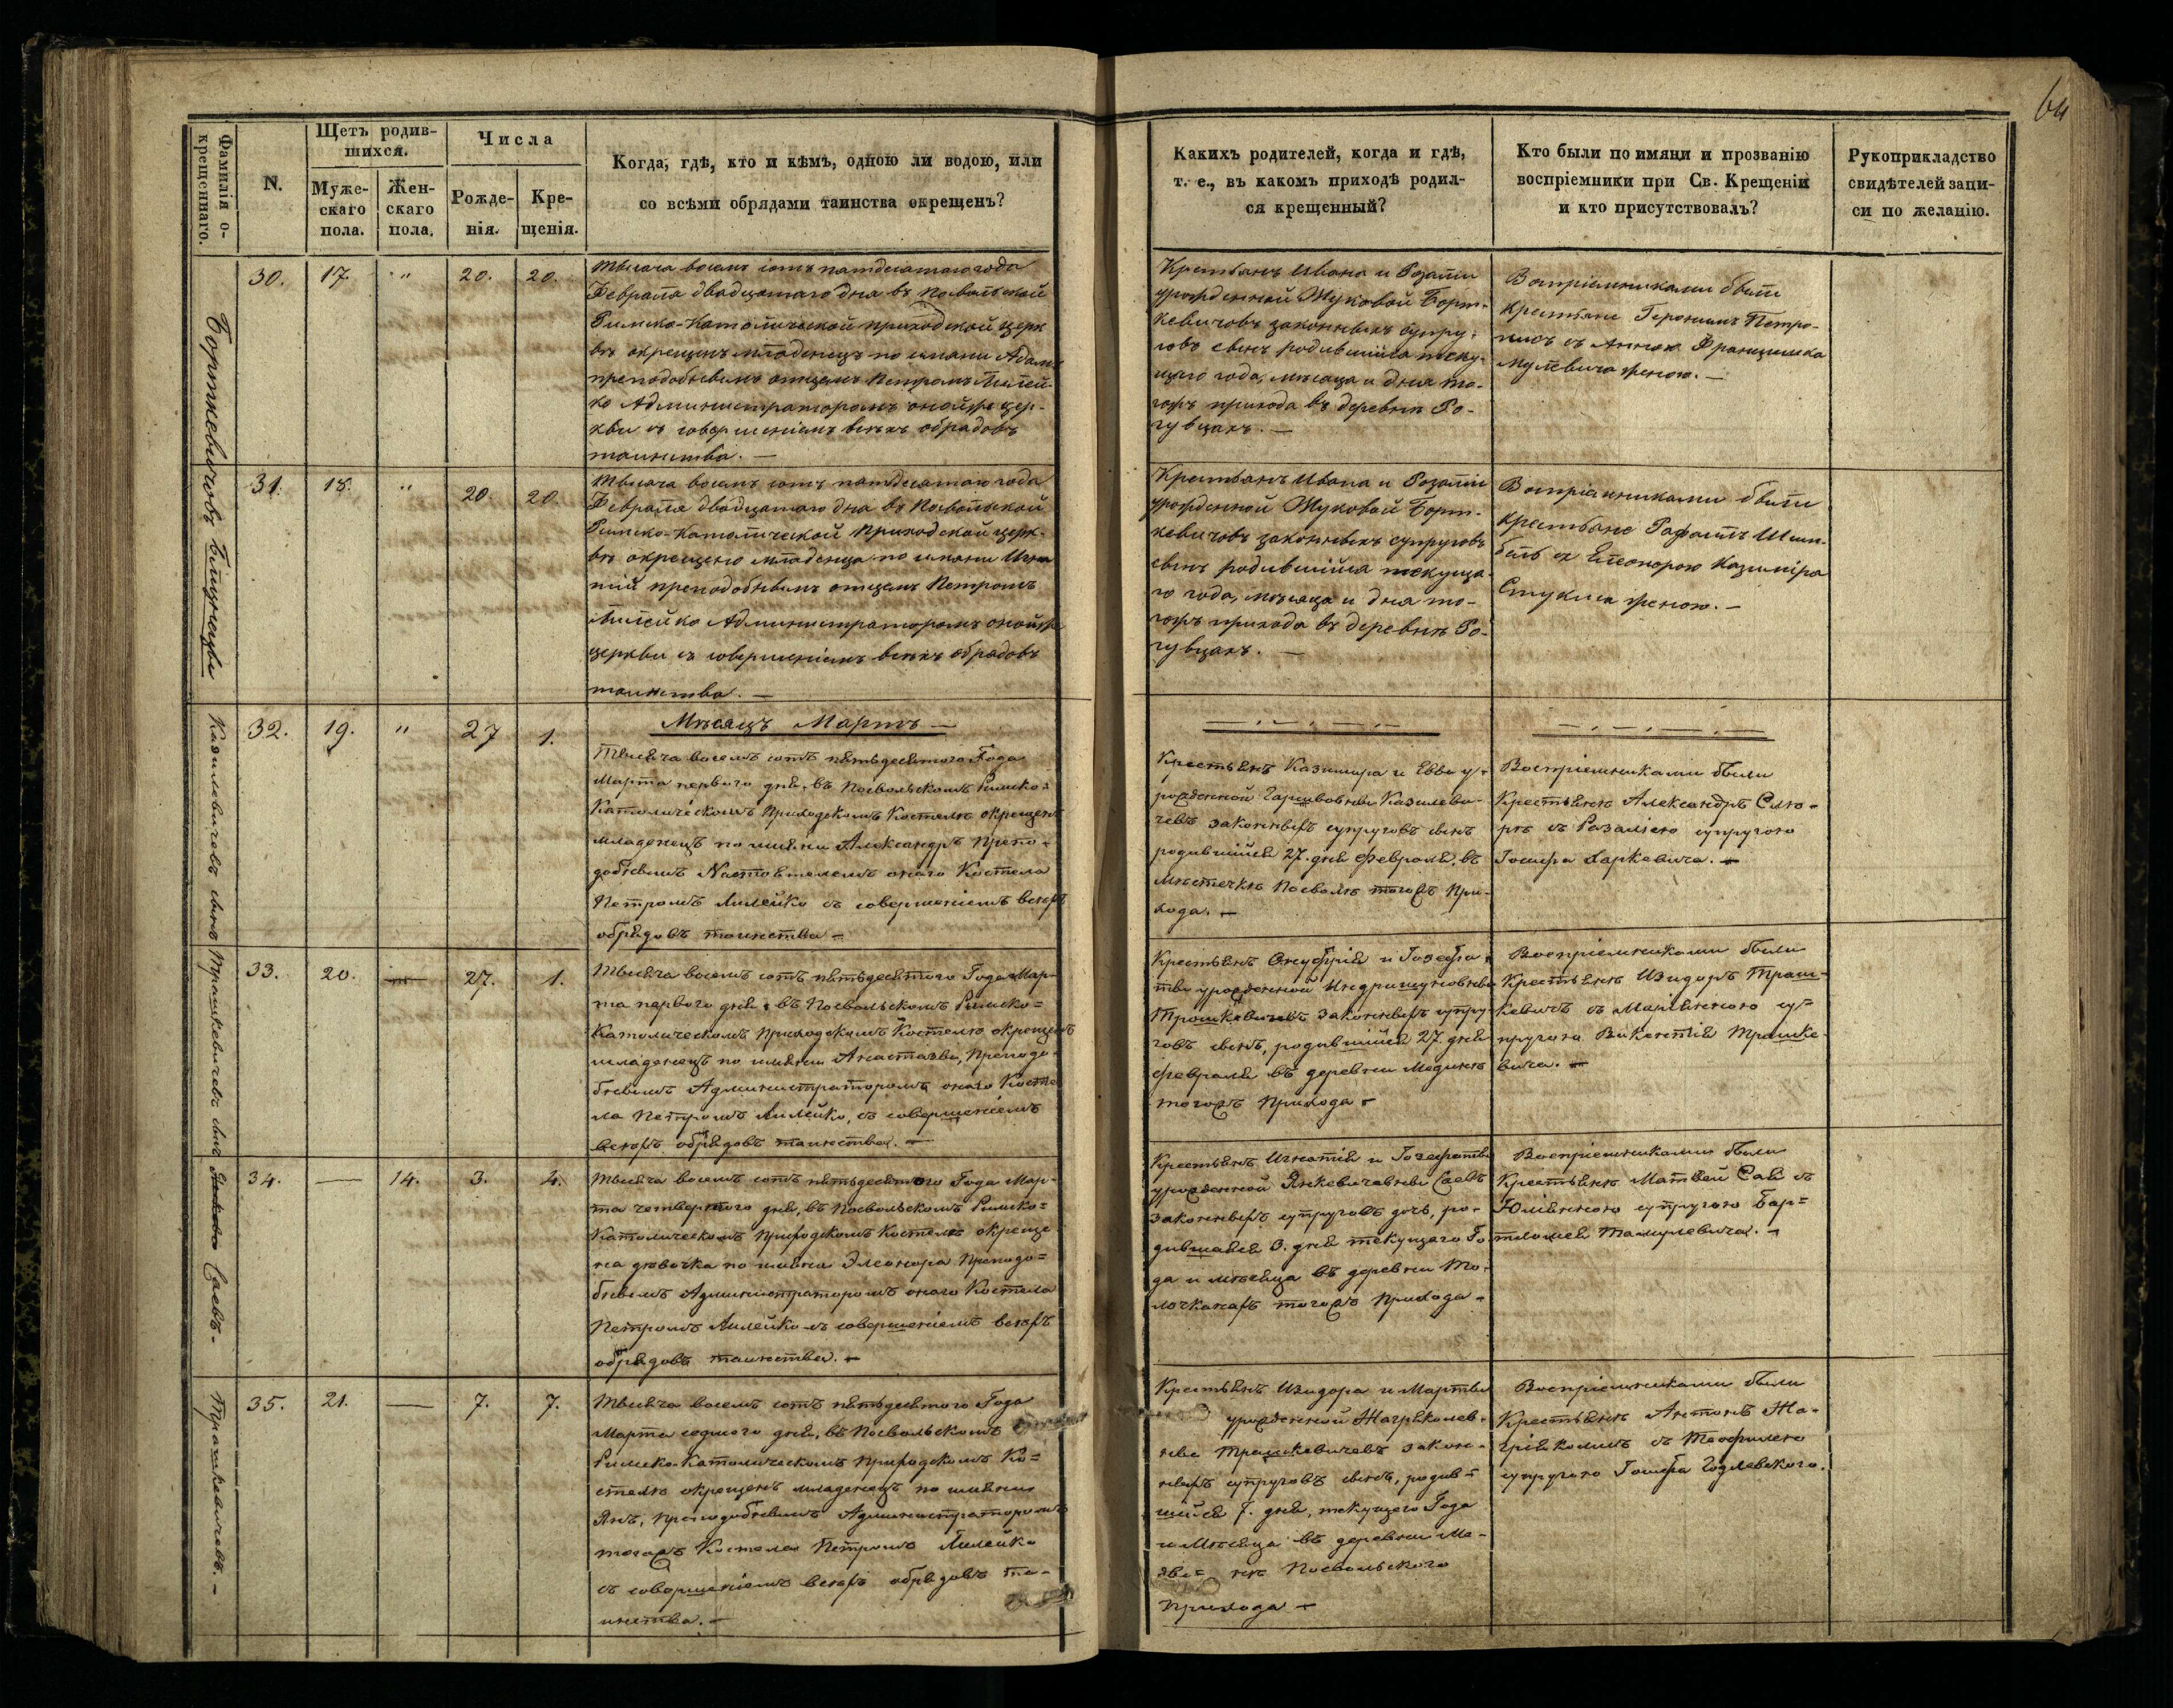 64
Фамилія о-
крещеннаго.
N.
Щетъ родив-
шихся.
Муже-
скаго
пола.
Жен-
скаго
пола.
Числа
Рожде-
нія.
Кре-
щенія.
Когда, гдѣ, кто и кѣмъ, одною ли водою, или
со всѣми обрядами таинства окрещенъ?
Какихъ родителей, когда и гдѣ,
т. е., въ какомъ приходѣ родил-
ся крещенный?
Кто были по имяни и прозванію
воспріемники при Св. Крещеніи
и кто присутствовалъ?
Рукоприкладство
свидѣтелей запи-
си по желанію.
Борткевичовъ близнецы
30. 17. " 20. 20.
Тысяча восемь сотъ пятдесятаго года
Февраля двадцатаго дня въ Посвольской
Римско-Католической приходской церк
вѣ окрещенъ младенецъ по имяни Адамъ
преподобнымъ отцемъ Петромъ Лилей-
ко Администраторомъ онойже цер-
кви съ совершеніемъ всѣхъ обрядовъ
таинства. —
Крестьянъ Ивана и Розаліи
урожденной Жуковой Борт-
кевичовъ законныхъ супру-
говъ сынъ родившійся теку-
щаго года, мѣсяца и дня то-
гожъ прихода въ деревнѣ Ро-
гувцахъ. —
Воспріемниками были
Крестьяне Геронимъ Петро-
съ Анною Францишка
женою. —
31. 18. " 20. 20.
Тысяча восемь сотъ пятдесятаго года
Февраля двадцатаго дня въ Посвольской
Римско-Католической Приходской церк-
вѣ окрещено младенца по имяни Игна
тій преподобнымъ отцемъ Петромъ
Лилейко Администраторомъ онойже
церкви съ совершеніемъ всѣхъ обрядовъ
таинства. —
Крестьянъ Ивана и Розаліи
урожденной Жуковой Борт-
кевичовъ законныхъ супруговъ
сынъ родившійся текуща-
го года, мѣсяца и дня то-
гожъ прихода въ деревнѣ Ро-
гувцахъ. —
Воспріемниками были
крестьяне Рафаилъ Шим-
съ Елеонорою Казиміра
женою. —
Казилевичевъ сынъ
32. 19. " 27 1.
Мѣсяцъ Мартъ —
Тысяча восемъ сотъ пятьдесятого Года
Марта первого дня, въ Посвольскомъ Римско-
Католическомъ Приходскомъ Костелѣ окрещенъ
младенецъ по имяни Александръ Препо-
добнымъ Настоятелемъ онаго Костела
Петромъ Лилейко съ совершеніемъ всѣхъ
обрядовъ таинства —
Крестьянъ Казимира и Еввы у-
рожденной Казилеви-
чевъ законныхъ супруговъ сынъ
родившійся 27. дня Февраля, въ
Мѣстечкѣ Посволѣ тогожъ При-
хода. —
Воспріемниками были
Крестьянѣ Александръ Слю-
съ Разаліею супругою
Іосифа Даркевича. —
Трашкевичевъ сынъ
33. 20. — 27. 1.
Тысяча восемъ сотъ пятьдесятого Года Мар-
та первого дня, въ Посвольскомъ Римско-
Католическомъ Приходскомъ Костелѣ окрещенъ
младенецъ по имяни Анастазы, Преподо-
бнымъ Администраторомъ онаго Косте
ла Петромъ Лилейко, съ совершеніемъ
всѣхъ обрядовъ таинства. —
Крестьянъ Онуфрія и Іозефа-
ты урожденной Индришуновны
Трошкевичевъ законныхъ супру-
говъ сынъ, родившійся 27 дня
Февраля въ деревни Модикѣ
тогожъ Прихода —
Воспріемниками были
Крестьянѣ Изидоръ Траш-
кевичъ съ Маріянною су-
пругою Викентія Трашке-
вича. —
Саевъ.
34. — 14. 3. 4.
Тысяча восемъ сотъ пятьдесятого Года Мар-
та четвертого дня, въ Посвольскомъ Римско-
Католическомъ Приходскомъ Костелѣ окреще
на дѣвочка по имяни Элеонора Преподо-
бнымъ Администраторомъ онаго Костела
Петромъ Лилейко съ совершеніемъ всѣхъ
обрядовъ таинства. —
Крестьянъ Игнатія и Іозефаты
урожденной Янкевичавны Саевъ
законныхъ супруговъ дочь, ро-
дившаяся 3. дня текущаго Го-
да и мѣсяца въ деревни То-
лочканахъ тогожъ Прихода —
Воспріемниками были
Крестьянѣ Матвей Сай съ
Юліянною супругою Бар-
тломея Тамулевича. —
Трашкевичевъ. —
35. 21. — 7. 7.
Тысяча восемъ сотъ пятьдесятого Года
Марта седмого дня, въ Посвольскомъ
Римско-Католическомъ Приходскомъ Ко-
стелѣ окрещенъ младенецъ по имяни
Янъ, Преподобнымъ Администраторомъ
тогожъ Костела Петромъ Лилейко
съ совершеніемъ всѣхъ обрядовъ та-
инства. —
Крестьянъ Изидора и Марты
урожденной Жагряколев-
ны Трашкевичевъ закон-
ныхъ супруговъ сынъ, родив-
шійся 7. дня, текущего Года
и Мѣсяца въ деревни
Посвольского
Прихода —
Воспріемниками были
Крестьянѣ Антонъ Жа-
съ Теофилею
супругою Іосифа Годлевского.